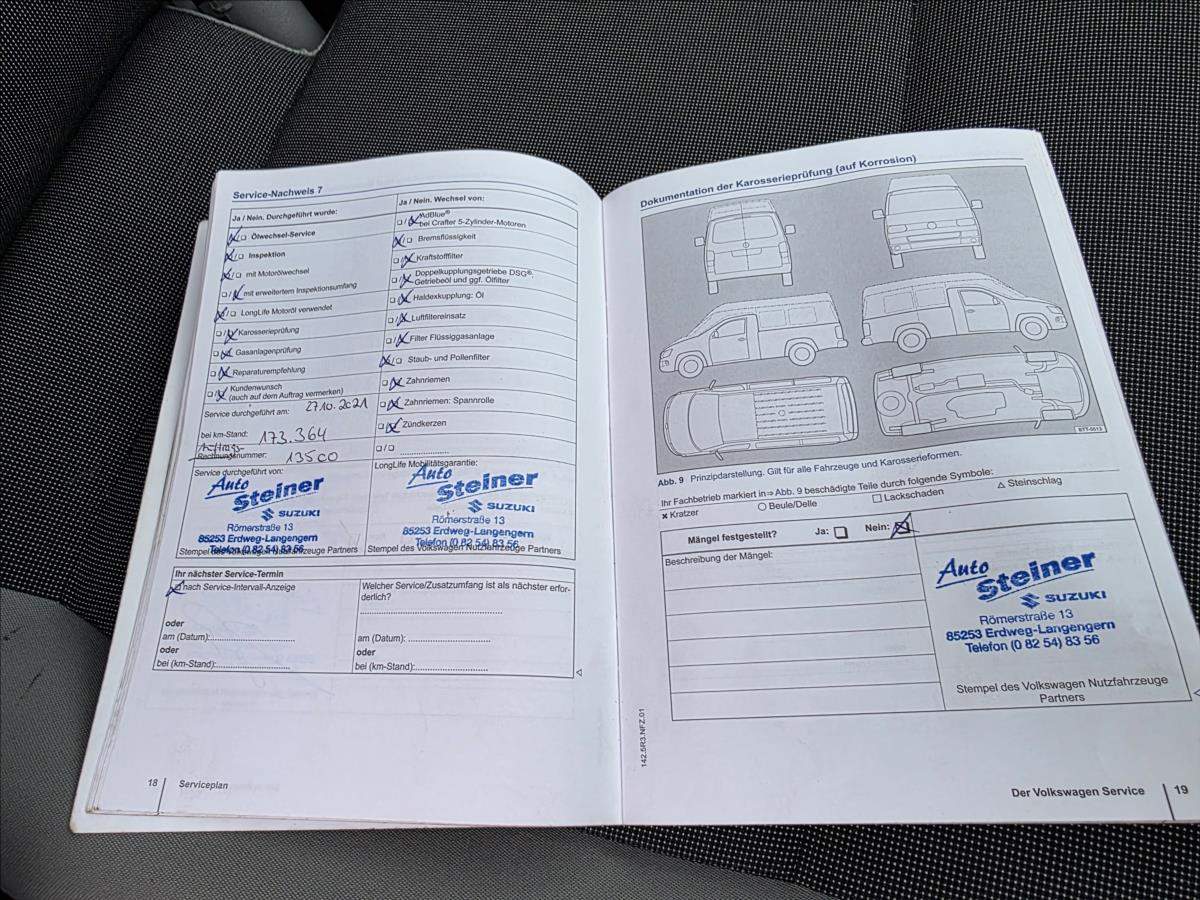 Service-Nachweis 7
Ja / Nein. Durchgeführt wurde:
Ölwechsel-Service
Inspektion
mit Motorölwechsel
mit erweitertem Inspektionsumfang
LongLife Motoröl verwendet
Karosserieprüfung
Gasanlagenprüfung
Reparaturempfehlung
Kundenwunsch
(auch auf dem Auftrag vermerken)
Service durchgeführt am: 27.10.2021
bei km-Stand: 173.364
Auftrags-
Rechnungsnummer: 13500
Service durchgeführt von:
Auto
Steiner
SUZUKI
Römerstraße 13
85253 Erdweg-Langengern
Telefon (0 82 54) 83 56
Stempel des Volkswagen Nutzfahrzeuge Partners
Ja / Nein. Wechsel von:
AdBlue®
bei Crafter 5-Zylinder-Motoren
Bremsflüssigkeit
Kraftstofffilter
Doppelkupplungsgetriebe DSG®:
Getriebeöl und ggf. Ölfilter
Haldexkupplung: Öl
Luftfiltereinsatz
Filter Flüssiggasanlage
Staub- und Pollenfilter
Zahnriemen
Zahnriemen: Spannrolle
Zündkerzen
LongLife Mobilitätsgarantie:
Auto
Steiner
SUZUKI
Römerstraße 13
85253 Erdweg-Langengern
Telefon (0 82 54) 83 56
Stempel des Volkswagen Nutzfahrzeuge Partners
Ihr nächster Service-Termin
nach Service-Intervall-Anzeige
oder
am (Datum):
oder
bei (km-Stand):
Welcher Service/Zusatzumfang ist als nächster erfor-
derlich?
am (Datum):
oder
bei (km-Stand):
18 Serviceplan
Dokumentation der Karosserieprüfung (auf Korrosion)
BTT-0013
Abb. 9 Prinzipdarstellung. Gilt für alle Fahrzeuge und Karosserieformen.
Ihr Fachbetrieb markiert in ⇒ Abb. 9 beschädigte Teile durch folgende Symbole:
× Kratzer ○ Beule/Delle □ Lackschaden △ Steinschlag
Mängel festgestellt? Ja: Nein:
Beschreibung der Mängel:
Auto
Steiner
SUZUKI
Römerstraße 13
85253 Erdweg-Langengern
Telefon (0 82 54) 83 56
Stempel des Volkswagen Nutzfahrzeuge
Partners
142.5R3.NFZ.01
Der Volkswagen Service 19